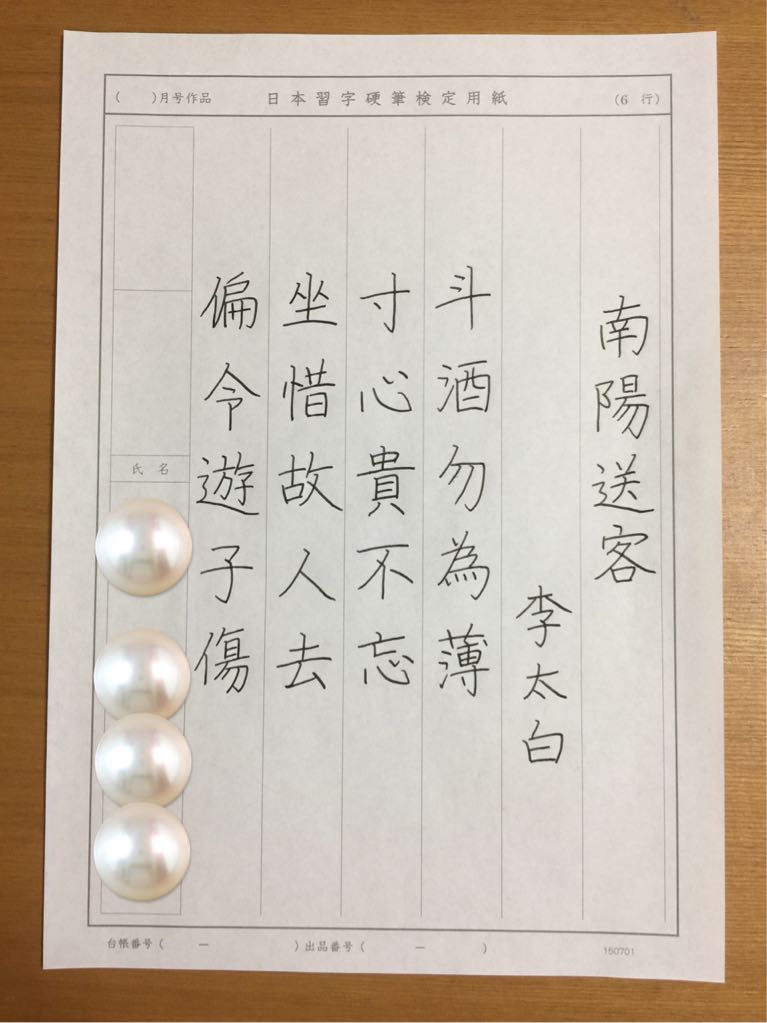 (　　)月号作品　日本習字硬筆検定用紙　(6　行)
南陽送客
李太白
斗酒勿為薄
寸心貴不忘
坐惜故人去
偏令遊子傷
氏名
台帳番号(　　－　　)出品番号(　　－　　)　150701